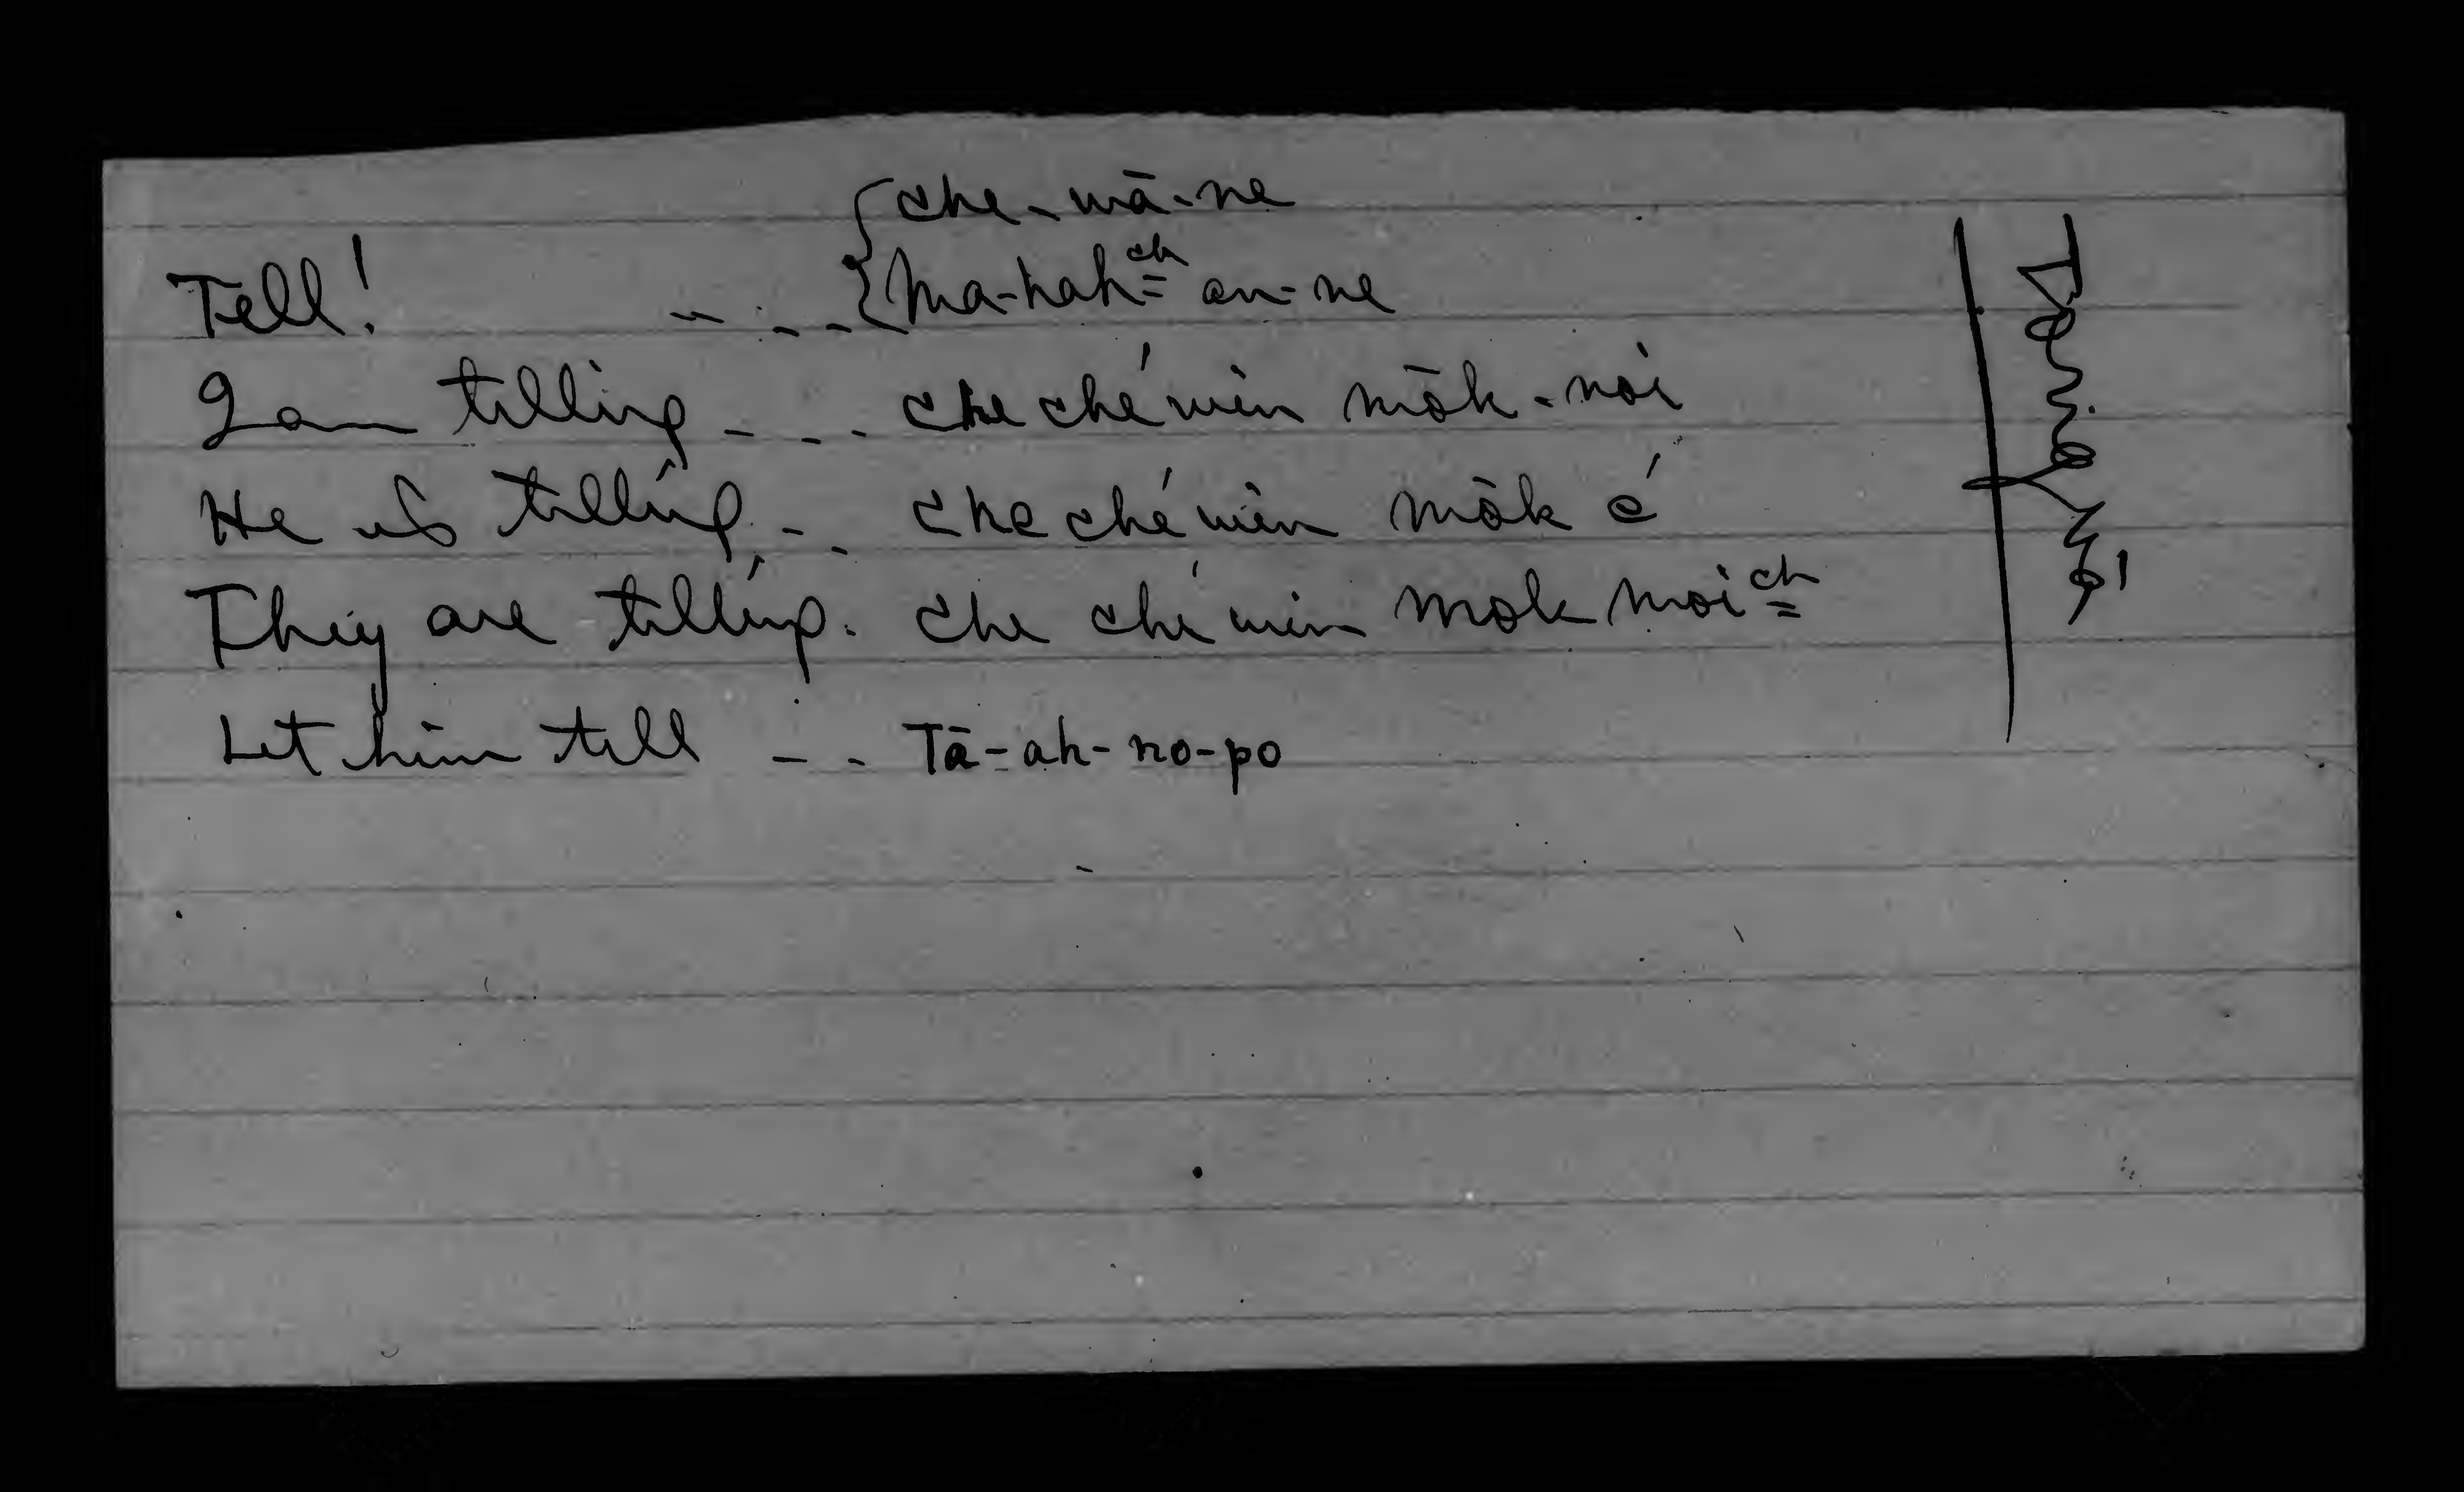 {che-wā-ne
Tell! -- - - {ma-hah^ch= an-ne
I am telling - - - che ché win mōk-noi
He is telling - - che ché win mōk é
They are telling. che ché win mok moi^ch=
Let him tell - - Tā-ah-no-po